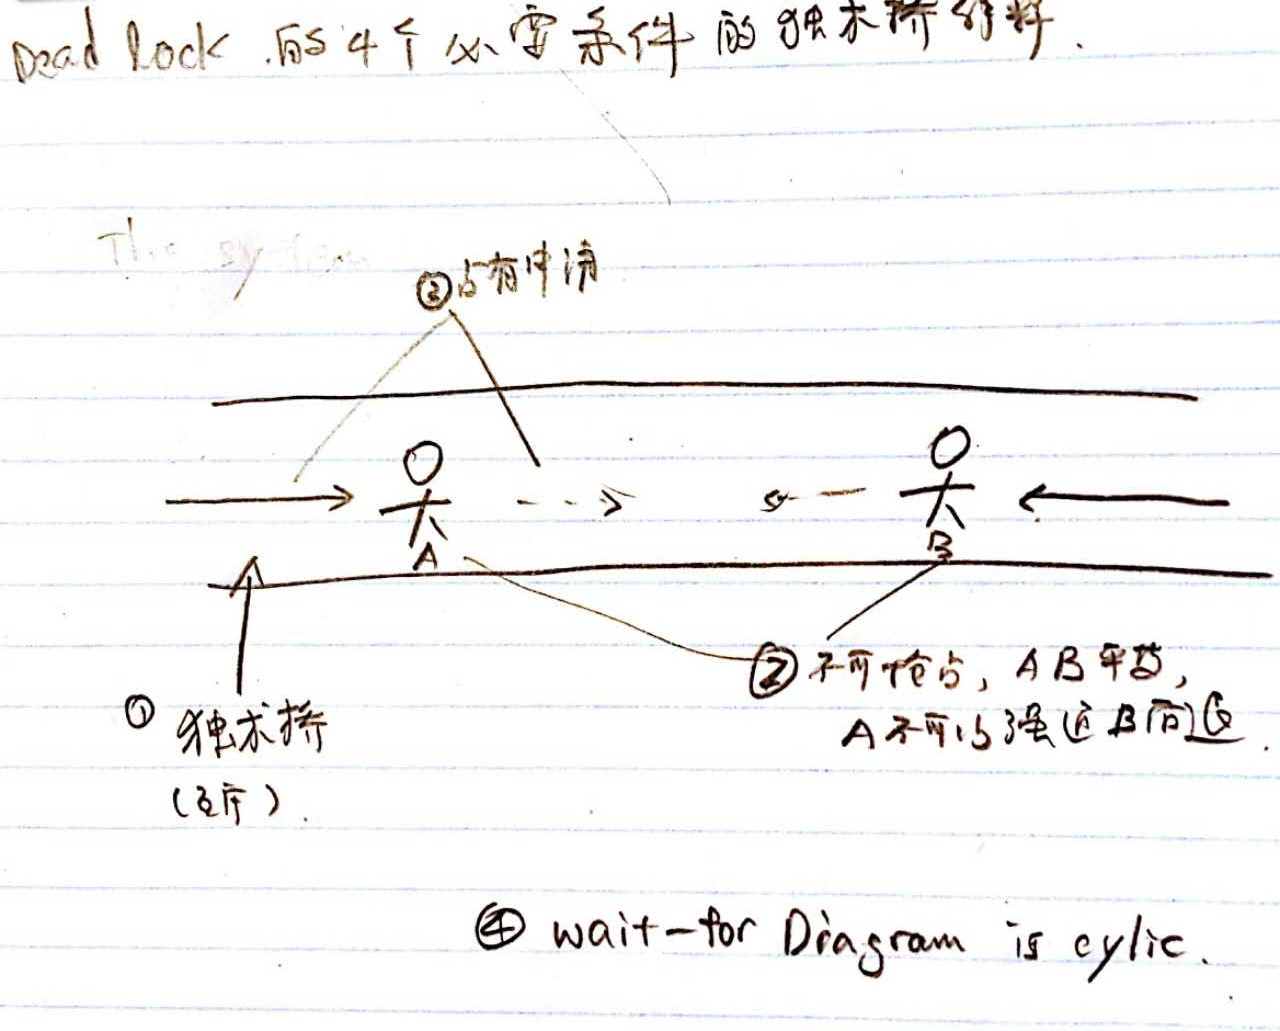 Dead lock 的 4 个 必要条件 的 独木桥解释.
The system
③占有申请
A
B
② 不可抢占, A B 平等,
A 不可以强迫 B 后退.
① 独木桥
(互斥).
④ wait-for Diagram is cylic.